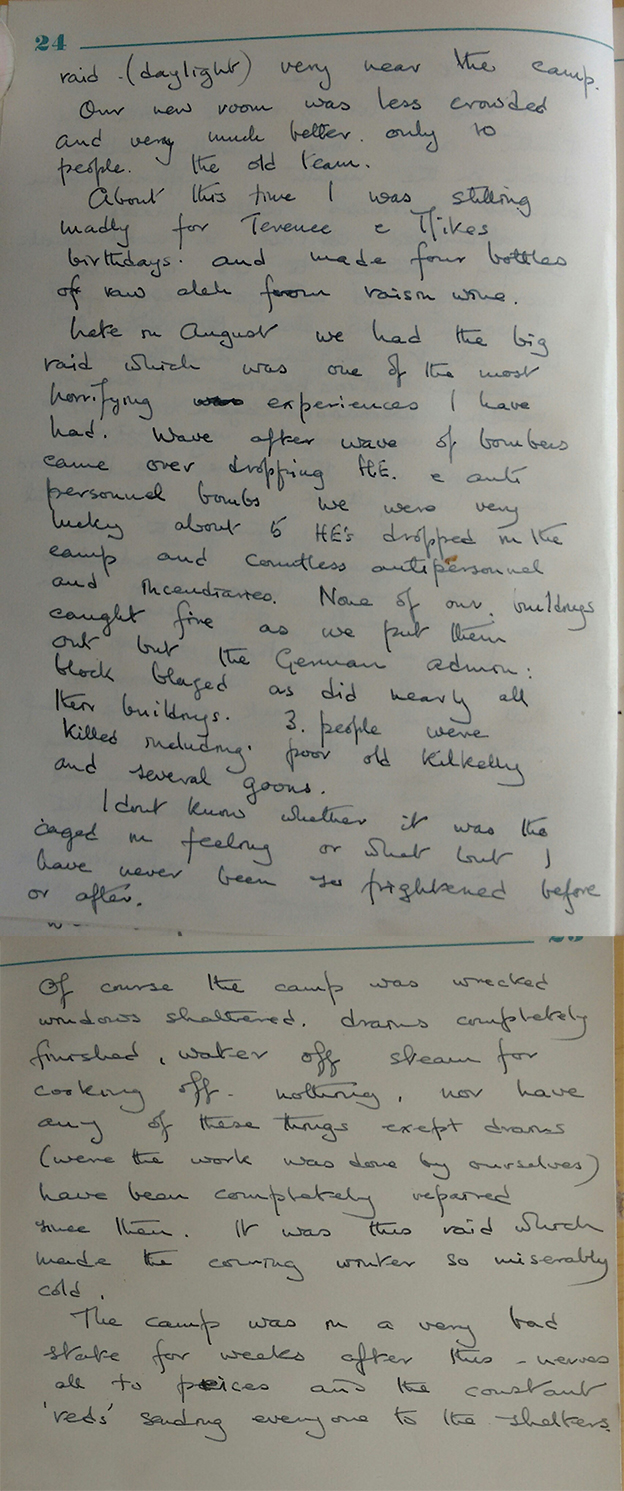 24
raid . (daylight) very near the camp.
Our new room was less crowded
and very much better. only 10
people. the old team.
About this time I was stilling
madly for Terence & Mikes
birthdays. and made four bottles
of raw alch from raisin wine.
Late in August we had the big
raid which was one of the most
horrifying was experiences I have
had. Wave after wave of bombers
came over dropping HE. & anti
personnel bombs we were very
lucky about 5 HE's dropped in the
camp and countless antipersonnel
and incendiaries. None of our buildings
caught fire as we put them
out but the German admin:
block blazed as did nearly all
their buildings. 3. people were
killed including. poor old Kilkelly
and several goons.
I dont know whether it was the
caged in feeling or what but I
have never been so frightened before
or after.
Of course the camp was wrecked
windows shattered. drains completely
finished, water off steam for
cooking off - nothing, nor have
any of these things exept drains
(were the work was done by ourselves)
have been completely repaired
since then. It was this raid which
made the coming winter so miserably
cold.
The camp was in a very bad
state for weeks after this - nerves
all to peices and the constant
'reds' sending everyone to the shelters.